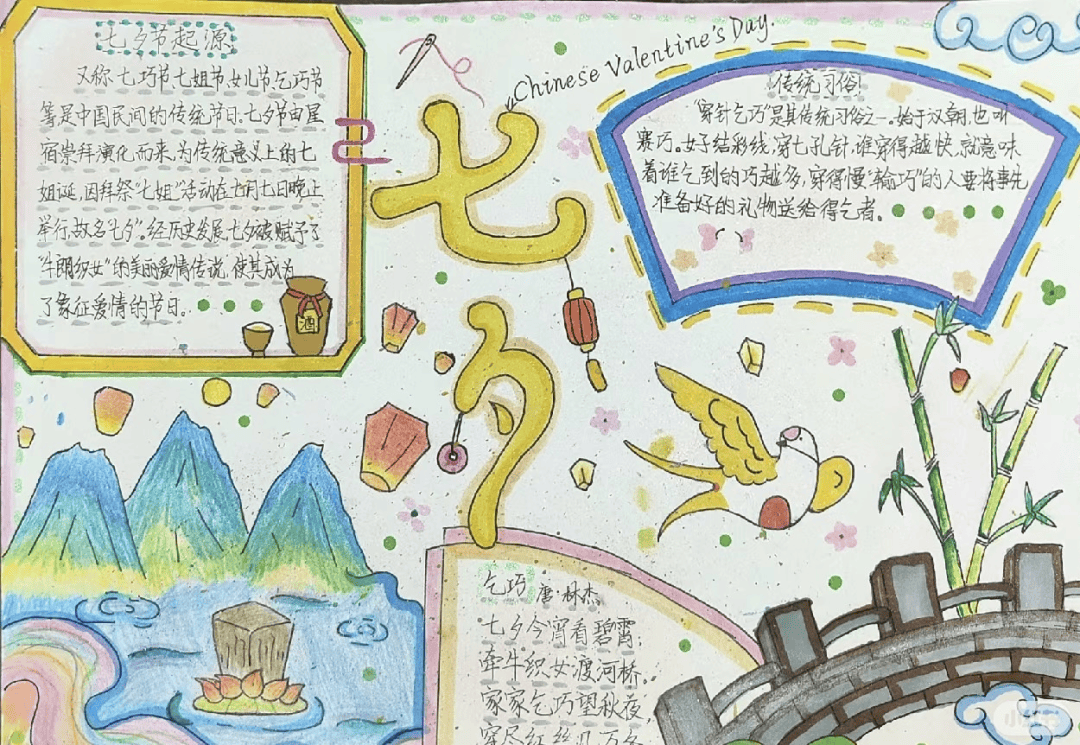 七夕节起源
又称七巧节、七姐节、女儿节、乞巧节
等是中国民间的传统节日。七夕节由星
宿崇拜演化而来,为传统意义上的七
姐诞,因拜祭“七姐”活动在七月七日晚上
举行,故名“七夕”。经历史发展,七夕被赋予了
“牛郎织女”的美丽爱情传说,使其成为
了象征爱情的节日。
酒
“Chinese Valentine's Day.
七夕
传统习俗
“穿针乞巧”是其传统习俗之一。始于汉朝,也叫
赛巧。女子结彩线,穿七孔针,谁穿得越快,就意味
着谁乞到的巧越多,穿得慢“输巧”的人要将事先
准备好的礼物送给得乞者。
乞巧 唐·林杰
七夕今宵看碧霄,
牵牛织女渡河桥。
家家乞巧望秋夜,
穿尽红丝几万条